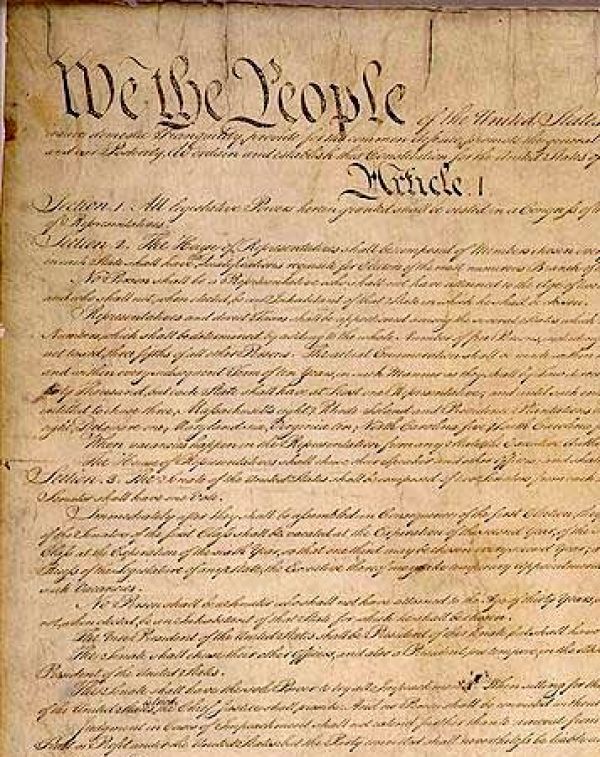 We the People of the United States
insure domestic Tranquility, provide for the common defence, promote the general
and our Posterity, do ordain and establish this Constitution for the United States of
Article. I.
Section. 1. All legislative Powers herein granted shall be vested in a Congress of the
of Representatives.
Section. 2. The House of Representatives shall be composed of Members chosen every
in each State shall have Qualifications requisite for Electors of the most numerous Branch of the
No Person shall be a Representative who shall not have attained to the Age of twenty
and who shall not, when elected, be an Inhabitant of that State in which he shall be chosen.
Representatives and direct Taxes shall be apportioned among the several States which
Numbers, which shall be determined by adding to the whole Number of free Persons, including
not taxed, three fifths of all other Persons. The actual Enumeration shall be made within
and within every subsequent Term of ten Years, in such Manner as they shall by Law direct.
thirty Thousand, but each State shall have at Least one Representative; and until such
entitled to chuse three, Massachusetts eight, Rhode Island and Providence Plantations
eight, Delaware one, Maryland six, Virginia ten, North Carolina five, South Carolina
When vacancies happen in the Representation from any State, the Executive Authority
The House of Representatives shall chuse their Speaker and other Officers; and shall
Section. 3. The Senate of the United States shall be composed of two Senators from each
Senator shall have one Vote.
Immediately after they shall be assembled in Consequence of the first Election, they
of the Senators of the first Class shall be vacated at the Expiration of the second Year, of the
Class at the Expiration of the sixth Year, so that one third may be chosen every second Year;
Recess of the Legislature of any State, the Executive thereof may make temporary Appointments
such Vacancies.
No Person shall be a Senator who shall not have attained to the Age of thirty Years,
not, when elected, be an Inhabitant of that State for which he shall be chosen.
The Vice President of the United States shall be President of the Senate, but shall have
The Senate shall chuse their other Officers, and also a President pro tempore, in the
President of the United States.
The Senate shall have the sole Power to try all Impeachments. When sitting for that
of the United States is tried, the Chief Justice shall preside: And no Person shall be convicted without
Judgment in Cases of Impeachment shall not extend further than to removal from
Trust or Profit under the United States: but the Party convicted shall nevertheless be liable